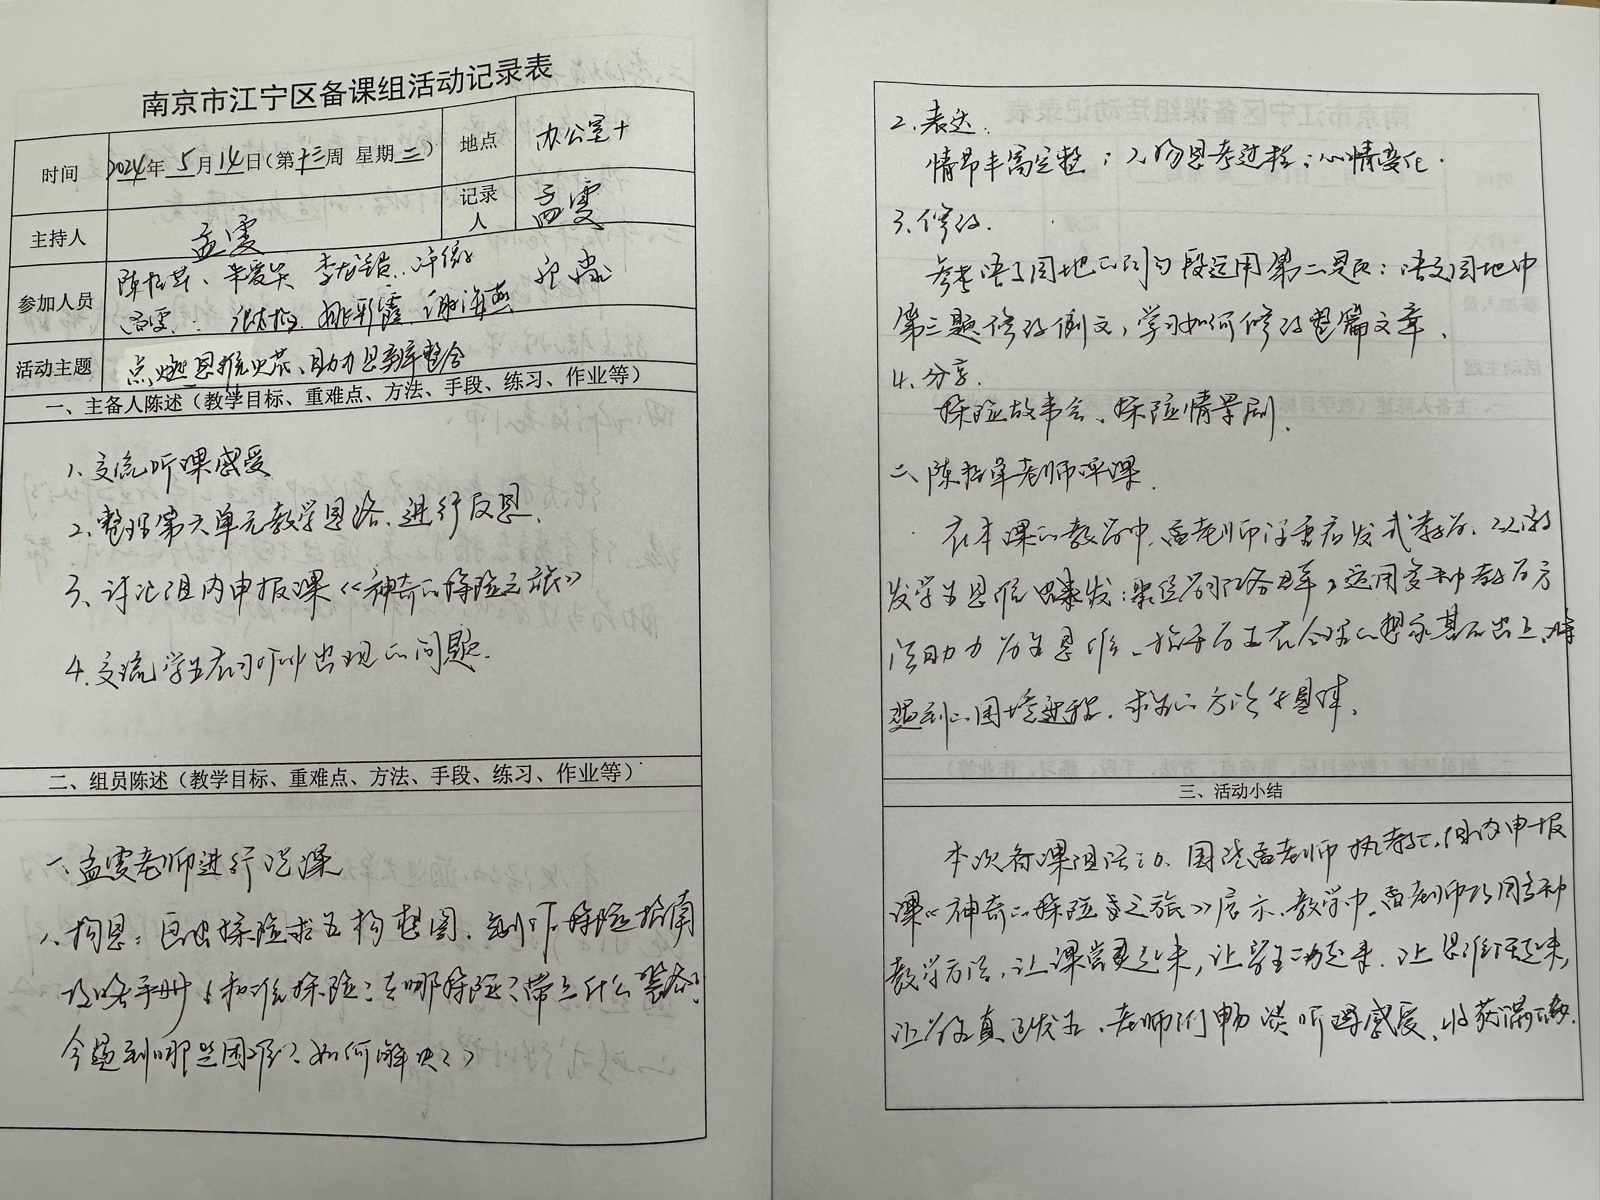 南京市江宁区备课组活动记录表
时间 2024年5月14日(第十三周 星期三) 地点 办公室
主持人 孟雯 记录人 孟雯
参加人员
姚彩霞、谢海燕
活动主题 点燃思维火花、助力思辨整合
一、主备人陈述(教学目标、重难点、方法、手段、练习、作业等)
1、交流听课感受
2、整理第六单元教学思路、进行反思.
3、讨论组内申报课《神奇的探险之旅》
4、交流学生在习作中出现的问题.
二、组员陈述(教学目标、重难点、方法、手段、练习、作业等)
一、孟雯老师进行说课
1、构思:画出探险 构想图,制作探险指南
攻略手册(和谁探险?去哪探险?带上什么装备?
会遇到哪些困难?如何解决?)
2、表达.
情节丰富完整;人物思考过程;心情变化.
3、修改.
参考语文园地的 句段运用第二题;语文园地中
第三题修改例文,学习如何修改整篇文章.
4、分享.
探险故事会、探险情景剧.
二、陈 老师评课.
在本课的教学中,孟老师注重启发式教学,以激
发学生思维 发; 学习任务群,运用多种教学方
法助力学生思维,
遇到的困境 ,求生的方法 具体.
三、活动小结
本次备课组活动,围绕孟老师执教的组内申报
课《神奇的探险之旅》展示,教学中,孟老师巧用多种
教学方法,让课堂 起来,让学生动起来,让思维活起来,
让 真正发生.老师们畅谈听课感受,收获满满.